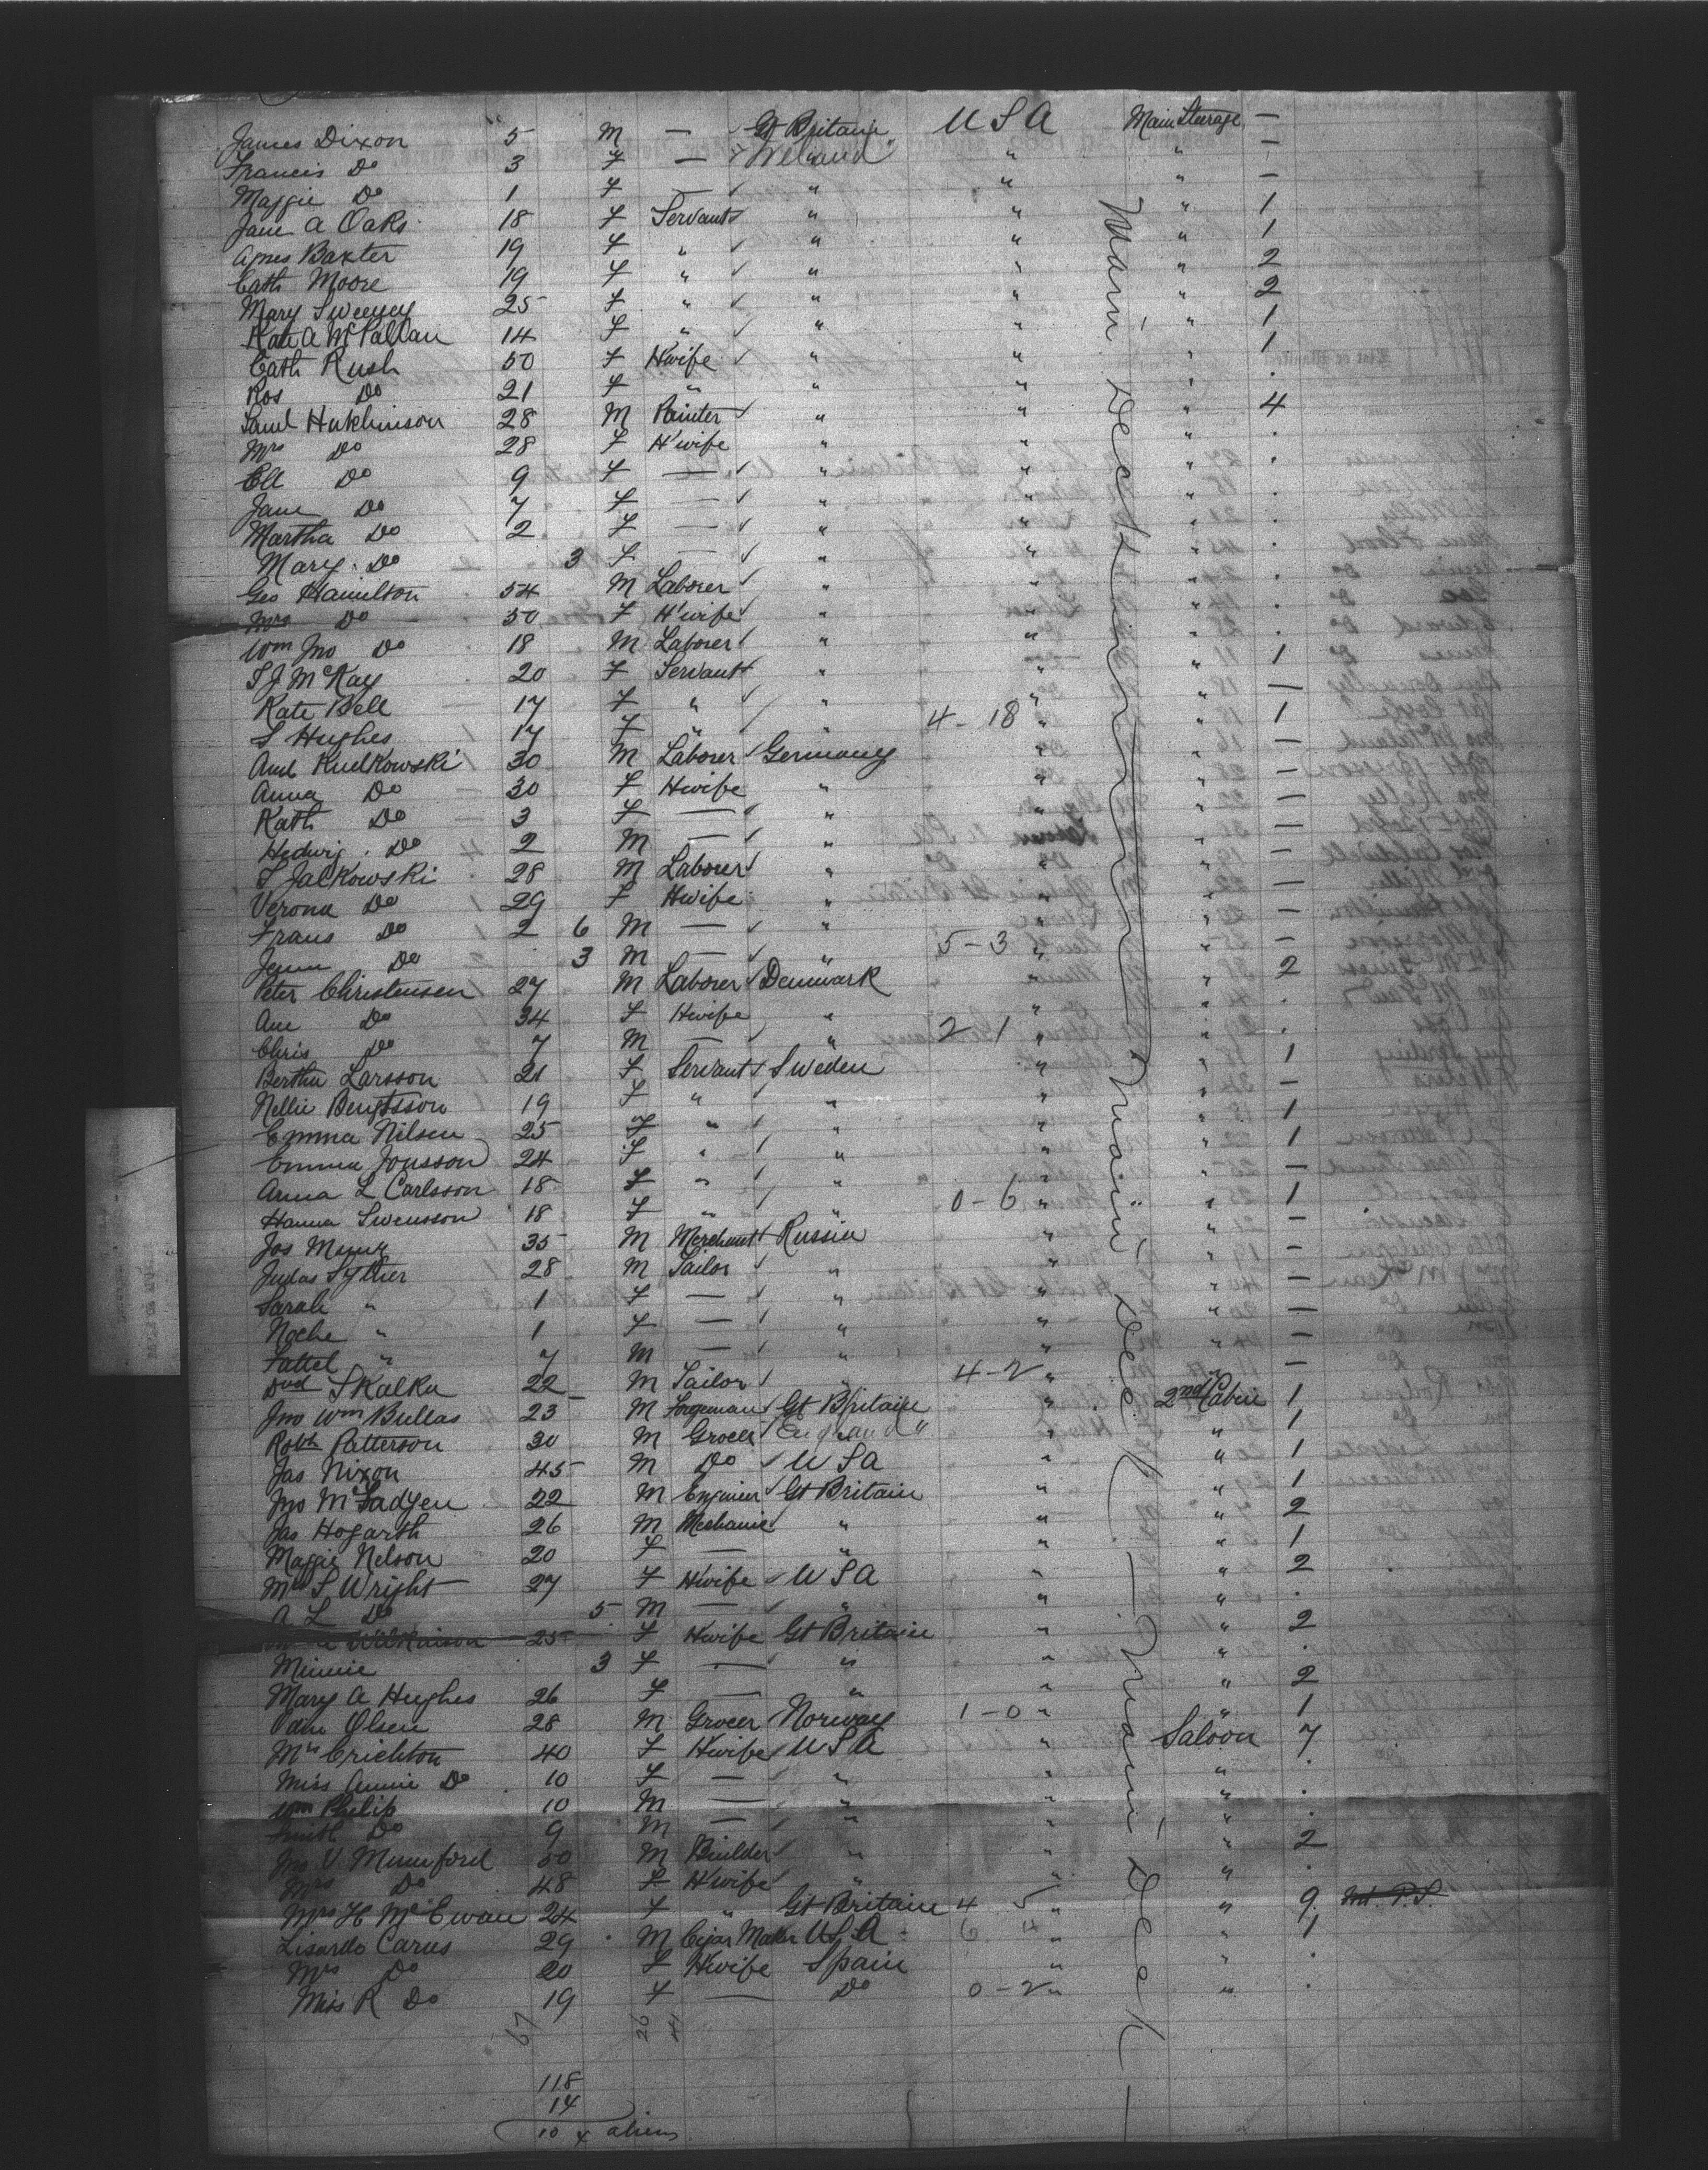 James Dixon 5 M — Gt Britain U S A Main Steerage —
Francis Do 3 F — Ireland " " —
Maggie Do 1 F — " " " —
Jane A Oaks 18 F Servant " " " 1
Agnes Baxter 19 F " " " " 1
Cath Moore 19 F " " " " 2
Mary Sweeney 25 F " " " " 2
Kate A 14 F " " " " 1
Cath Rush 50 F Hwife " " " 1
Ros Do 21 F " " " " .
Saml Hutchinson 28 M Painter " " " 4
Mrs Do 28 F H'wife " " " .
Ell Do 9 F — " " " .
Jane Do 7 F — " " " .
Martha Do 2 F — " " " .
Mary Do 3 F — " " " .
Geo Hamilton 54 M Laborer " " " .
Mrs Do 50 F H'wife " " " .
Wm Jno Do 18 M Laborer " " " .
S J McKay 20 F Servant " " " 1
Kate Bell 17 F " " " " —
S Hughes 17 F " " 4-18 " " 1
Aud Rudkowski 30 M Laborer Germany " " —
Anna Do 30 F Hwife " " " —
Kath Do 3 F — " " " —
Hedwig Do 2 M — " " " —
S Jalkowski 28 M Laborer " " " —
Verona Do 29 F Hwife " " " —
Frans Do 2 6 M — " " " —
Do 3 M — " 5-3 " " —
Peter Christensen 27 M Laborer Denmark " " 2
Ane Do 34 F Hwife " " " .
Chris Do 7 M — " 2-1 " " .
Bertha Larsson 21 F Servant Sweden " " 1
Nellie Bengtsson 19 F " " " " —
Emma Nilsen 25 F " " " " 1
Emma Jonsson 24 F " " " " 1
Anna L Carlsson 18 F " " " " —
Hanna Swensson 18 F " " 0-6 " " 1
Jos 35 M Merchant Russia " " —
Judas 28 M Tailor " " " —
Sarah " 1 F — " " " —
Noche " 1 F — " " " —
" 7 M — " " " —
Dvd Skalka 22 M Tailor " 4-2 " " —
Jno Wm Bullas 23 M Forgeman Gt Britain " 2nd Cabin 1
Robt Patterson 30 M Grocer England " " " 1
Jas Nixon 45 M Do U S A " " 1
Jno McFadyen 22 M Engineer Gt Britain " " 1
Jas Hogarth 26 M Mechanic " " " 2
Maggie Nelson 20 F — " " " 1
Mrs S Wright 27 F Hwife U S A " " 2
A L Do 5 M — " " " .
Wilkinson 25 F Hwife Gt Britain " " 2
Minnie 3 F — " " " .
Mary A Hughes 26 F — " " " 2
Olsen 28 M Grocer Norway 1-0 " " 1
Mrs Crichton 40 F Hwife U S A " Saloon 7
Miss Annie Do 10 F — " " " .
Wm Philip 10 M — " " " .
Smith Do 9 M — " " " .
Jno V Mumford 50 M Builder " " " 2
Mrs Do 48 F H'wife " " " .
Mrs H McEwan 24 F " Gt Britain 4 5 " " 9
Lisardo Carus 29 M Cigar Maker U S A 6 4 " " 1
Mrs Do 20 F Hwife Spain " " .
Miss R Do 19 F — Do 0-2 " " .
67 26 41
118
14
104 aliens
Main Deck
Main Deck
Main Deck